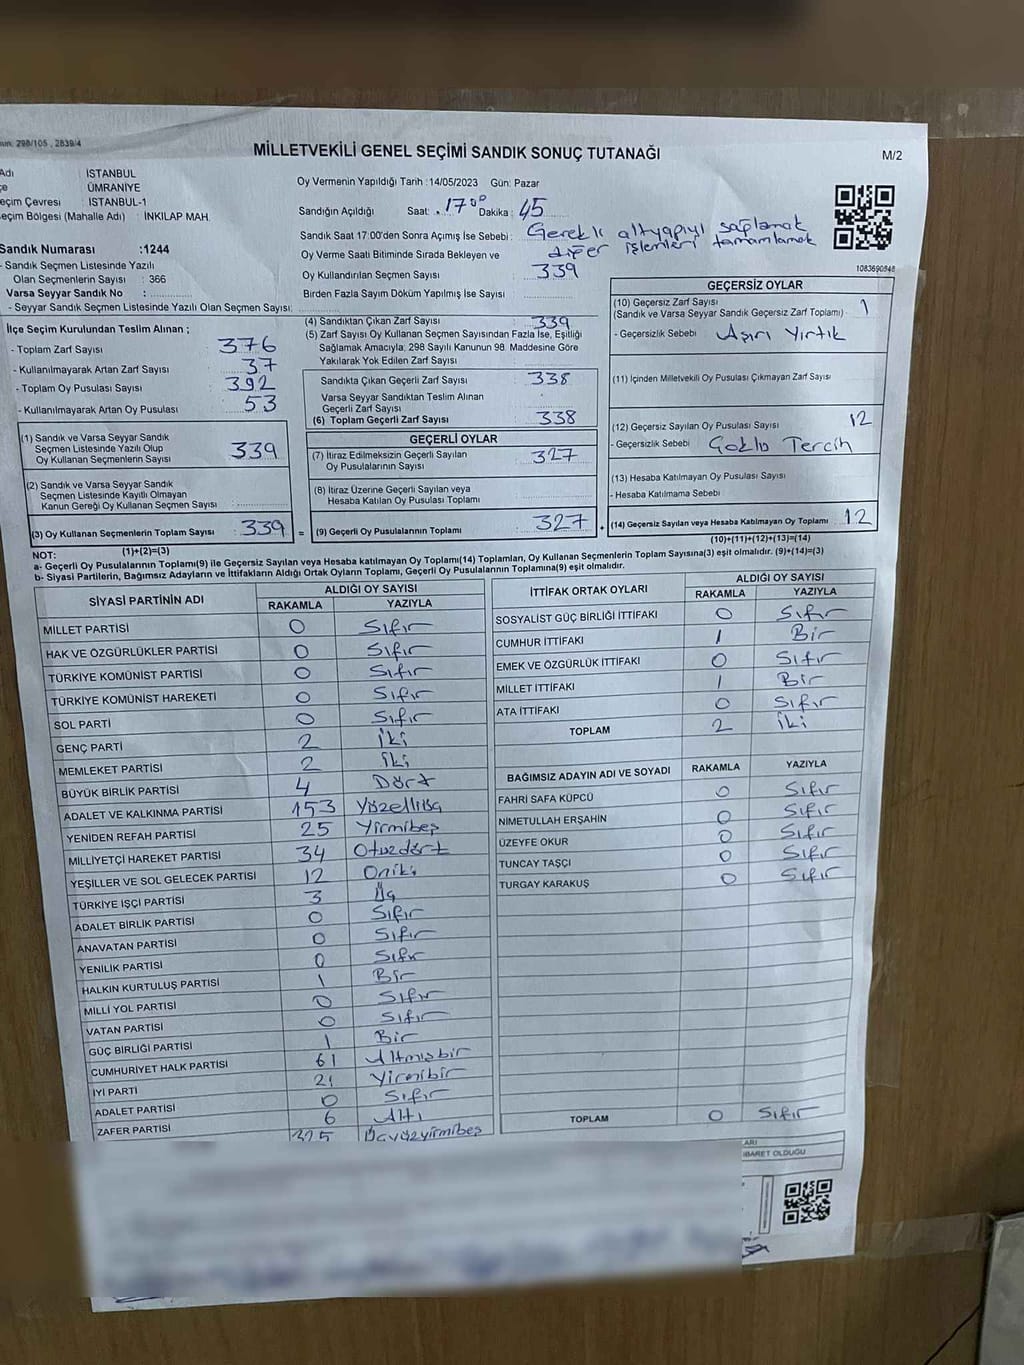 298/105 , 2839/4
MİLLETVEKİLİ GENEL SEÇİMİ SANDIK SONUÇ TUTANAĞI
M/2
Adı : İSTANBUL
ÜMRANİYE
eçim Çevresi : İSTANBUL-1
eçim Bölgesi (Mahalle Adı) : İNKILAP MAH.
Sandık Numarası :1244
- Sandık Seçmen Listesinde Yazılı
Olan Seçmenlerin Sayısı : 366
Varsa Seyyar Sandık No :
- Seyyar Sandık Seçmen Listesinde Yazılı Olan Seçmen Sayısı:
Oy Vermenin Yapıldığı Tarih :14/05/2023 Gün: Pazar
Sandığın Açıldığı Saat: 17:00 Dakika : 45
Sandık Saat 17:00'den Sonra Açımış İse Sebebi : Gerekli altyapıyı sağlamak
diğer işlemleri tamamlamak
Oy Verme Saati Bitiminde Sırada Bekleyen ve
Oy Kullandırılan Seçmen Sayısı 339
Birden Fazla Sayım Döküm Yapılmış İse Sayısı
1083690948
İlçe Seçim Kurulundan Teslim Alınan ;
- Toplam Zarf Sayısı 376
- Kullanılmayarak Artan Zarf Sayısı 37
- Toplam Oy Pusulası Sayısı 392
- Kullanılmayarak Artan Oy Pusulası 53
(1) Sandık ve Varsa Seyyar Sandık
Seçmen Listesinde Yazılı Olup
Oy Kullanan Seçmenlerin Sayısı 339
(2) Sandık ve Varsa Seyyar Sandık
Seçmen Listesinde Kayıtlı Olmayan
Kanun Gereği Oy Kullanan Seçmen Sayısı
(3) Oy Kullanan Seçmenlerin Toplam Sayısı 339 =
(1)+(2)=(3)
(4) Sandıktan Çıkan Zarf Sayısı 339
(5) Zarf Sayısı Oy Kullanan Seçmen Sayısından Fazla İse, Eşitliği
Sağlamak Amacıyla; 298 Sayılı Kanunun 98. Maddesine Göre
Yakılarak Yok Edilen Zarf Sayısı :
Sandıkta Çıkan Geçerli Zarf Sayısı 338
Varsa Seyyar Sandıktan Teslim Alınan
Geçerli Zarf Sayısı
(6) Toplam Geçerli Zarf Sayısı 338
GEÇERLİ OYLAR
(7) İtiraz Edilmeksizin Geçerli Sayılan
Oy Pusulalarının Sayısı 327
(8) İtiraz Üzerine Geçerli Sayılan veya
Hesaba Katılan Oy Pusulası Toplamı
(9) Geçerli Oy Pusulalarının Toplamı 327 +
GEÇERSİZ OYLAR
(10) Geçersiz Zarf Sayısı
(Sandık ve Varsa Seyyar Sandık Geçersiz Zarf Toplamı) 1
- Geçersizlik Sebebi Aşırı Yırtık
(11) İçinden Milletvekili Oy Pusulası Çıkmayan Zarf Sayısı
(12) Geçersiz Sayılan Oy Pusulası Sayısı 12
- Geçersizlik Sebebi Çoklu Tercih
(13) Hesaba Katılmayan Oy Pusulası Sayısı
- Hesaba Katılmama Sebebi
(14) Geçersiz Sayılan veya Hesaba Katılmayan Oy Toplamı 12
(10)+(11)+(12)+(13)=(14)
NOT:
a- Geçerli Oy Pusulalarının Toplamı(9) ile Geçersiz Sayılan veya Hesaba katılmayan Oy Toplamı(14) Toplamları, Oy Kullanan Seçmenlerin Toplam Sayısına(3) eşit olmalıdır. (9)+(14)=(3)
b- Siyasi Partilerin, Bağımsız Adayların ve İttifakların Aldığı Ortak Oyların Toplamı, Geçerli Oy Pusulalarının Toplamına(9) eşit olmalıdır.
SİYASİ PARTİNİN ADI ALDIĞI OY SAYISI
RAKAMLA YAZIYLA
MİLLET PARTİSİ 0 Sıfır
HAK VE ÖZGÜRLÜKLER PARTİSİ 0 Sıfır
TÜRKİYE KOMÜNİST PARTİSİ 0 Sıfır
TÜRKİYE KOMÜNİST HAREKETİ 0 Sıfır
SOL PARTİ 0 Sıfır
GENÇ PARTİ 2 İki
MEMLEKET PARTİSİ 2 İki
BÜYÜK BİRLİK PARTİSİ 4 Dört
ADALET VE KALKINMA PARTİSİ 153 Yüzelliüç
YENİDEN REFAH PARTİSİ 25 Yirmibeş
MİLLİYETÇİ HAREKET PARTİSİ 34 Otuzdört
YEŞİLLER VE SOL GELECEK PARTİSİ 12 Oniki
TÜRKİYE İŞÇİ PARTİSİ 3 Üç
ADALET BİRLİK PARTİSİ 0 Sıfır
ANAVATAN PARTİSİ 0 Sıfır
YENİLİK PARTİSİ 0 Sıfır
HALKIN KURTULUŞ PARTİSİ 1 Bir
MİLLİ YOL PARTİSİ 0 Sıfır
VATAN PARTİSİ 0 Sıfır
GÜÇ BİRLİĞİ PARTİSİ 1 Bir
CUMHURİYET HALK PARTİSİ 61 Altmışbir
İYİ PARTİ 21 Yirmibir
ADALET PARTİSİ 0 Sıfır
ZAFER PARTİSİ 6 Altı
325 Üçyüzyirmibeş
İTTİFAK ORTAK OYLARI ALDIĞI OY SAYISI
RAKAMLA YAZIYLA
SOSYALİST GÜÇ BİRLİĞİ İTTİFAKI 0 Sıfır
CUMHUR İTTİFAKI 1 Bir
EMEK VE ÖZGÜRLÜK İTTİFAKI 0 Sıfır
MİLLET İTTİFAKI 1 Bir
ATA İTTİFAKI 0 Sıfır
TOPLAM 2 İki
BAĞIMSIZ ADAYIN ADI VE SOYADI RAKAMLA YAZIYLA
FAHRİ SAFA KÜPCÜ 0 Sıfır
NİMETULLAH ERŞAHİN 0 Sıfır
ÜZEYFE OKUR 0 Sıfır
TUNCAY TAŞÇI 0 Sıfır
TURGAY KARAKUŞ 0 Sıfır
TOPLAM 0 Sıfır
ARI
İBARET OLDUĞU